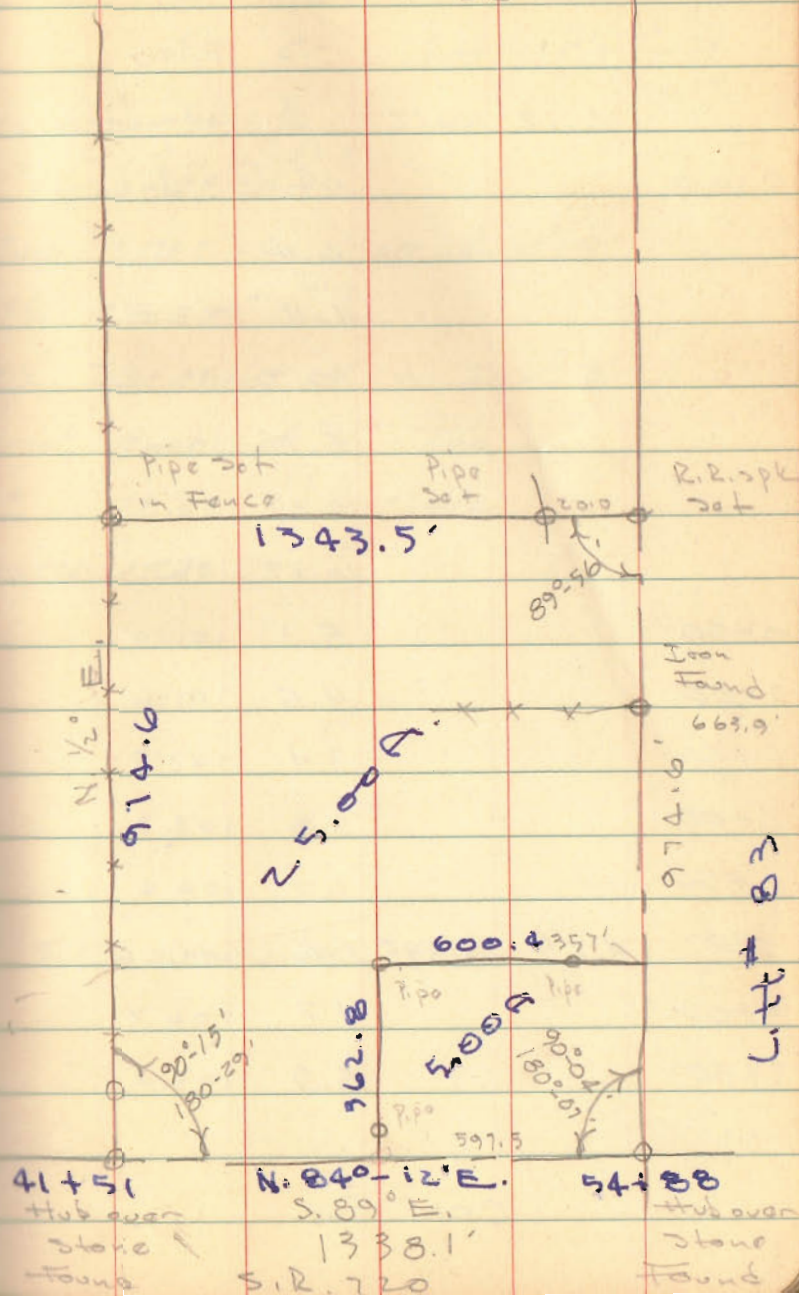 Pipe Set
in Fence
Pipe
Set
20.0
R.R. spk
Set
1343.5'
89°-56'
Iron
Found
663.9'
N. 1/2° E.
974.6
974.6'
25.00 A.
600.4
357'
Pipe
Pipe
362.8
5.00 A
Pipe
90°-15'
180-29'
90°-04'
180°-07'
597.5
41+51
N. 84°-12' E.
54+88
Hub over
Stone
Found
S. 89° E.
1338.1'
S.R. 720
Hub over
Stone
Found